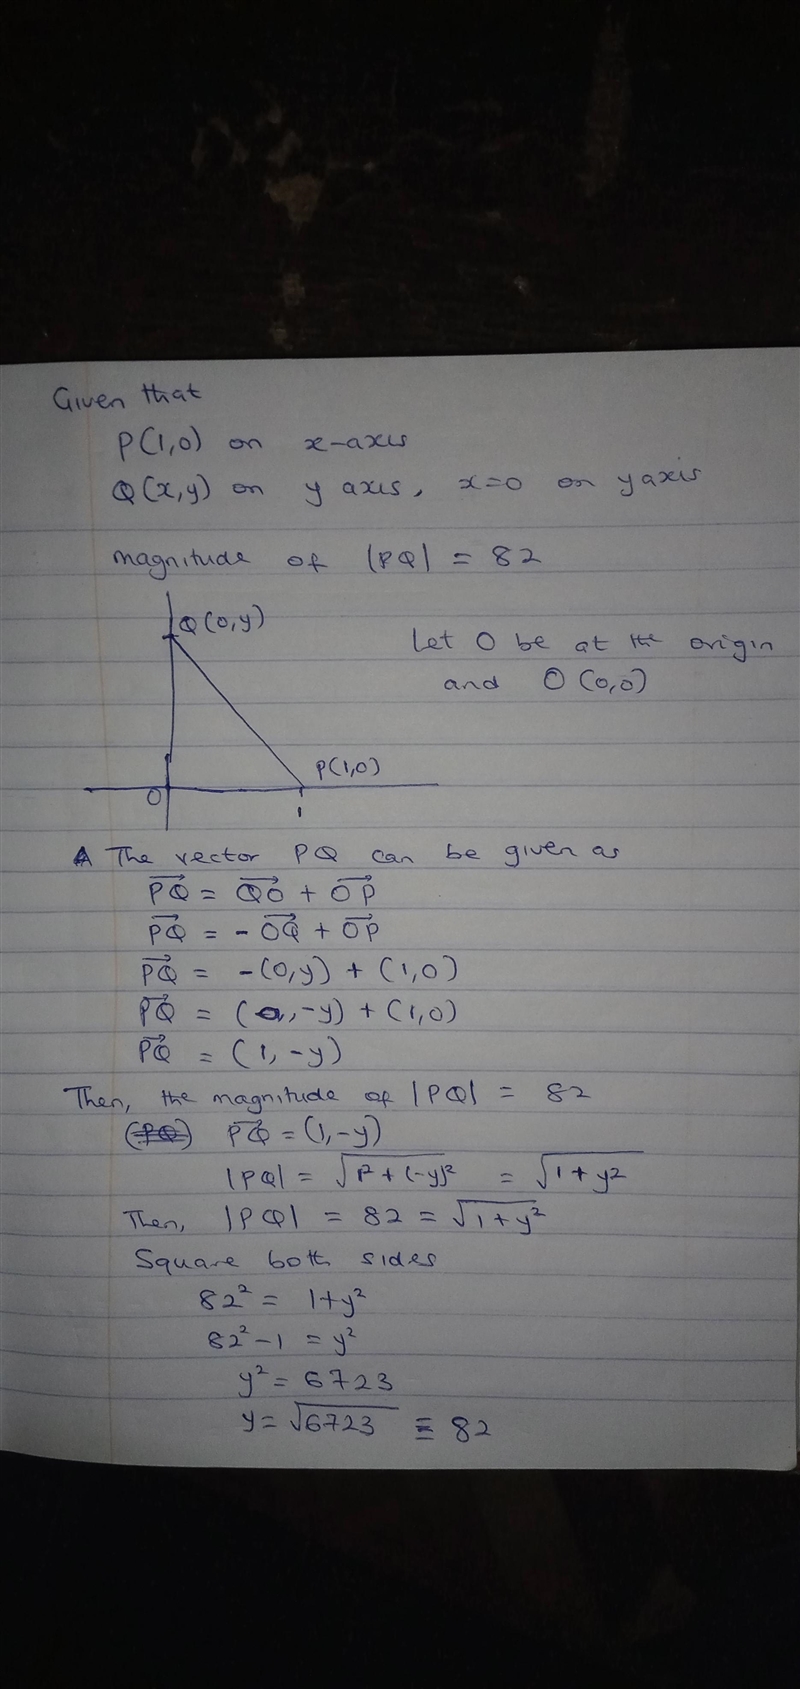 Given that
P(1,0) on x-axis
Q(x,y) on y axis, x=0 on y axis
magnitude of |PQ| = 82
Q(0,y)
Let O be at the origin
and O(0,0)
P(1,0)
O
1
The vector PQ can be given as
PQ⃗ = QO⃗ + OP⃗
PQ⃗ = -OQ⃗ + OP⃗
PQ⃗ = -(0,y) + (1,0)
PQ⃗ = (0,-y) + (1,0)
PQ⃗ = (1,-y)
Then, the magnitude of |PQ| = 82
(PQ) PQ⃗ = (1,-y)
|PQ| = √(1² + (-y)²) = √(1 + y²)
Then, |PQ| = 82 = √(1 + y²)
Square both sides
82² = 1+y²
82² - 1 = y²
y² = 6723
y = √6723 ≡ 82